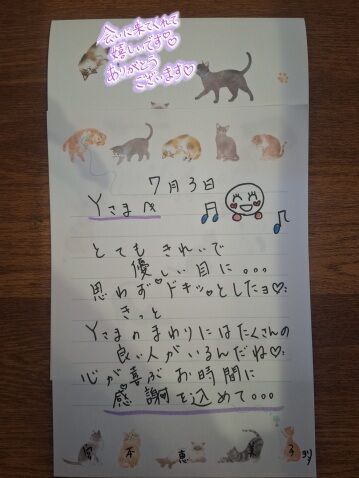 会いに来てくれて
嬉しいです♡
ありがとう
ございます♡
7月3日
Yさまへ
とても きれいで
優しい目に。。。
思わず♡ドキッ♥としたョ♡
きっと
Yさまのまわりにはたくさんの
良い人がいるんだね♡
心が喜ぶお時間に
感謝を込めて。。。
宮本恵美子より